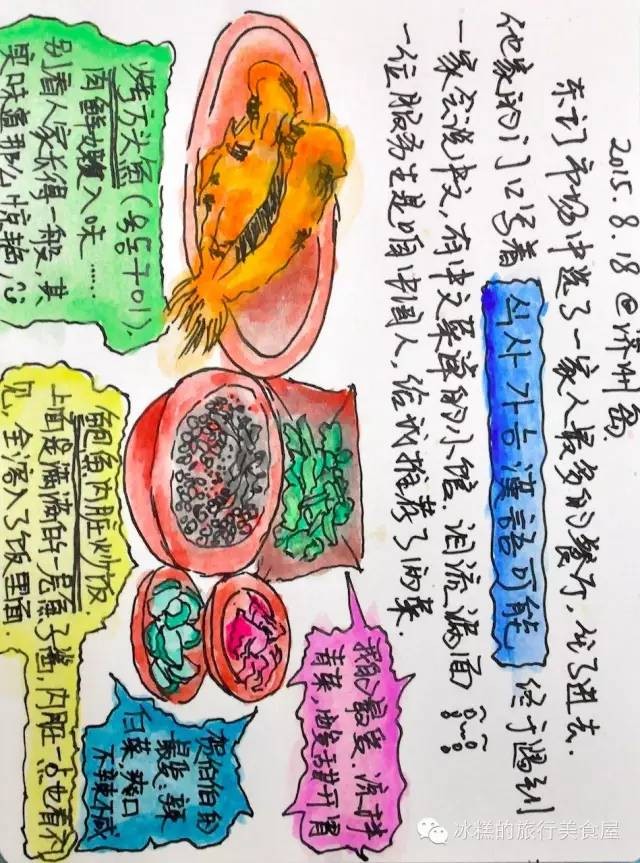 2015.8.18 @济州岛
东门市场中选了一家人最多的餐厅,坐了进去.
他家的门口写着 식사 가능 漢語可能 终于遇到
一家会说中文,有中文菜单的小馆.泪流满面
一位服务生是咱中国人,给我推荐了两菜.
烤方头鱼(옥돔구이).
肉鲜嫩入味......
别看人家长得一般,其
实味道那么惊艳
我的最爱.凉拌
青菜,甜开胃
伯伯的
最爱:辣
白菜,爽口
不辣不咸
鲍鱼内脏炒饭
上面是满满的一层鱼子酱,内脏一点也看不
见,全溶入了饭里面.
冰糕的旅行美食屋